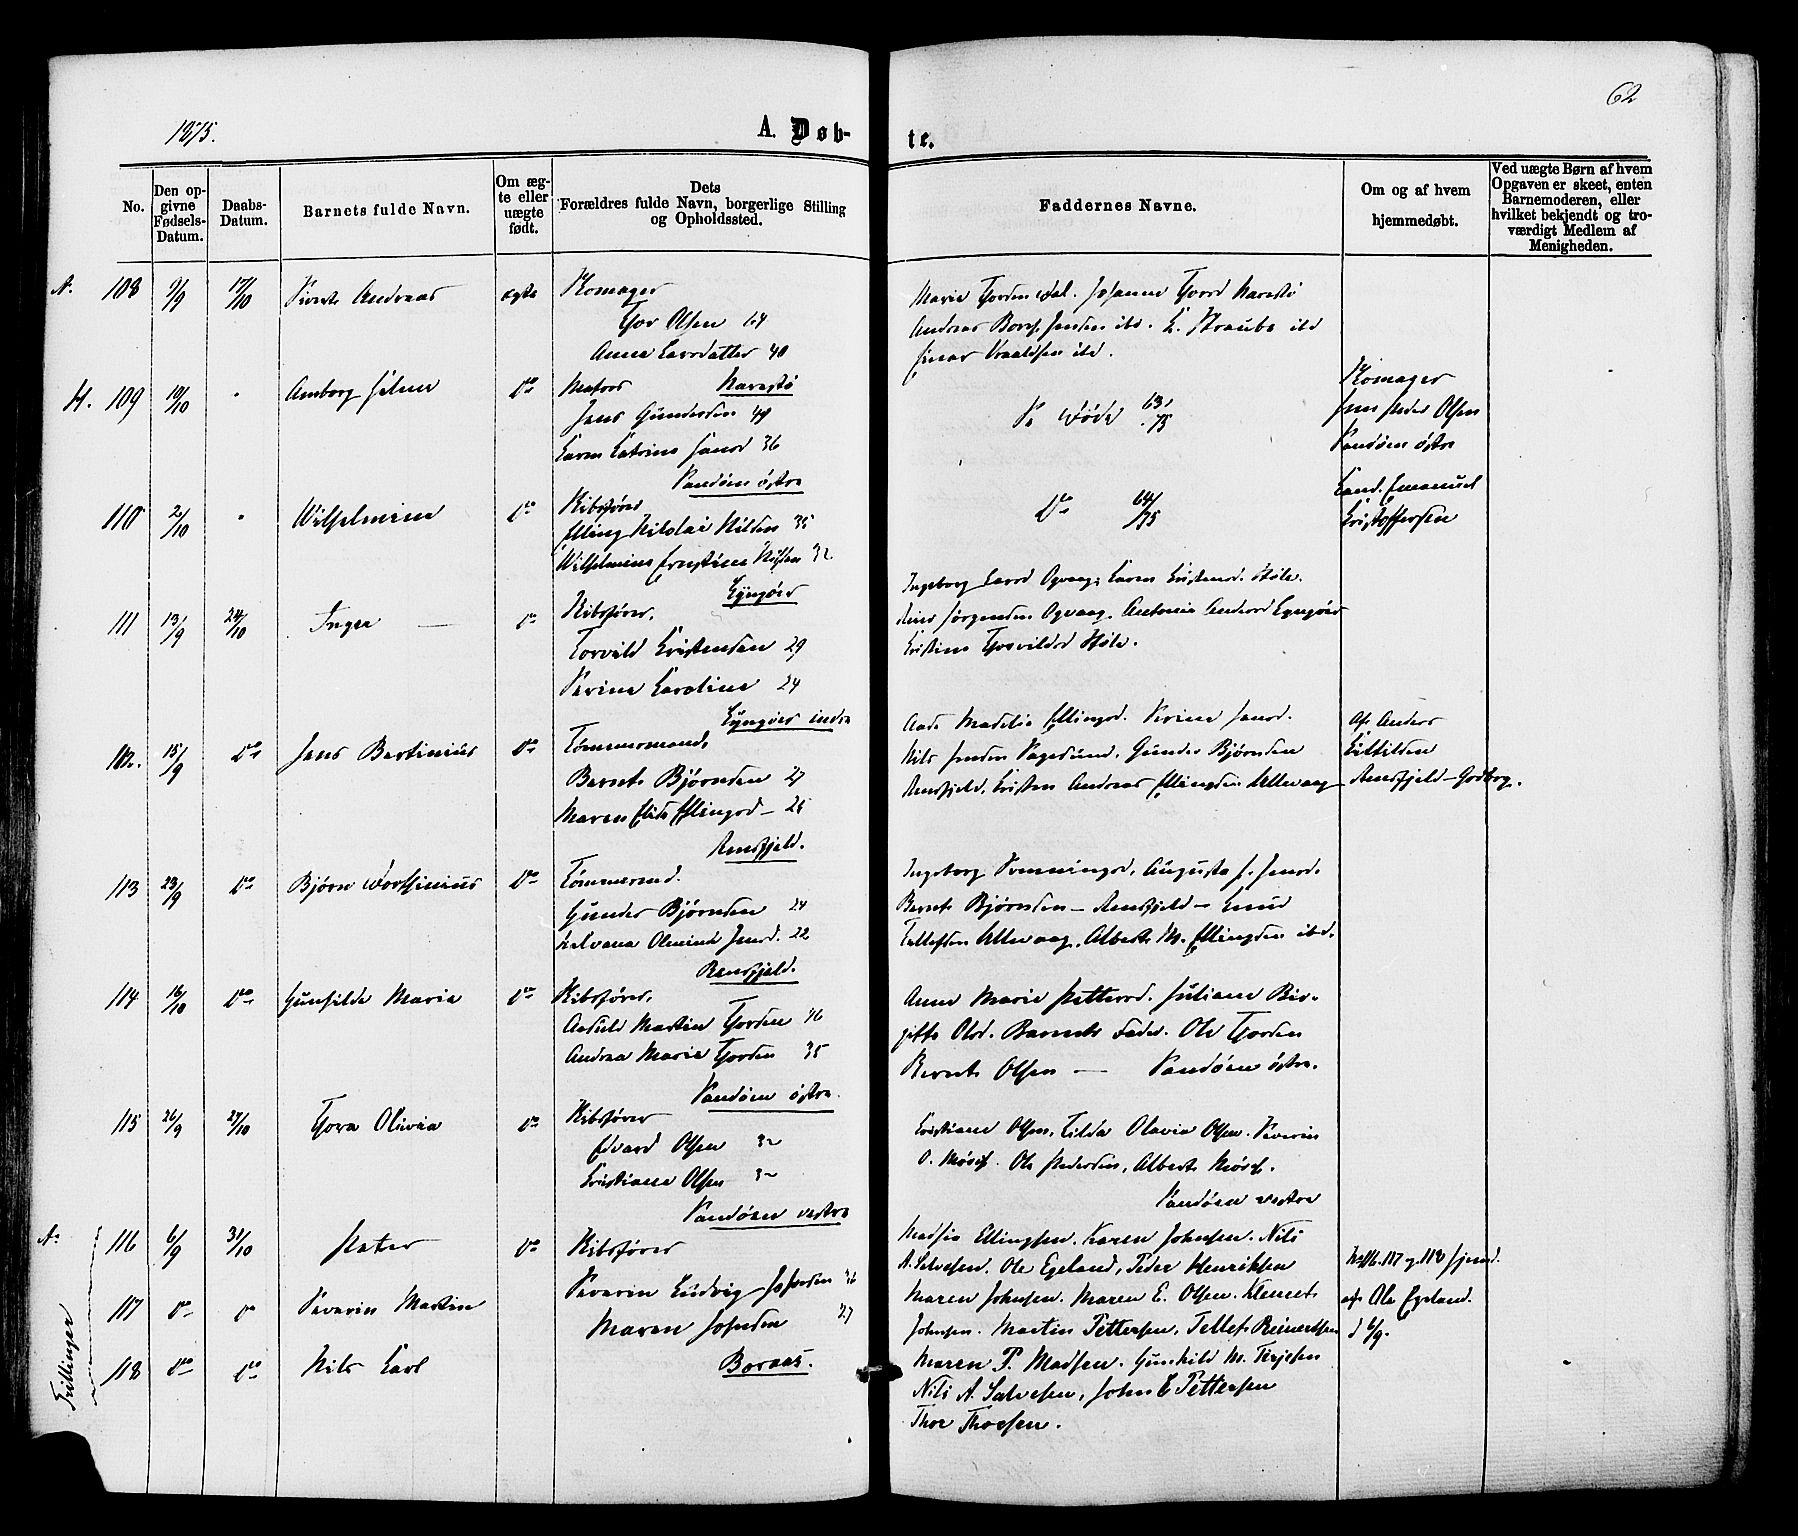 62
1875.
A. Døb-
te.
No.
Den op-
givne
Fødsels-
Datum.
Daabs-
Datum.
Barnets fulde Navn.
Om æg-
te eller
uægte
født.
Dets
Forældres fulde Navn, borgerlige Stilling
og Opholdssted.
Faddernes Navne.
Om og af hvem
hjemmedøbt.
Ved uægte Børn af hvem
Opgaven er skeet, enten
Barnemoderen, eller
hvilket bekjendt og tro-
værdigt Medlem af
Menigheden.
N. 108 9/9 17/10 Sivert Andreas ægte
Tjor Olsen
Anna Larsdatter 40
Narestø
Andreas
H. 109 10/10 Amborg
Jens Gundersen 49
Karen Katrine Jensd 36
Sandøen østre
Se Døde 63/75
Olsen
Sandøen østre
110 2/10 Wilhelmine Do
Skibsfører
Elling Nikolai Nilsen 35
Wilhelmine Ernstine Nilsen 32
Lyngøer
Do 64/75
Cand. Emanuel
Kristoffersen
111 13/9 24/10 Inger Do
Skibsfører,
Torvild Kristensen 29
Serine Karoline 24
Lyngøer indre
Ingeborg Larsd Ogvaag, Karen Kristensd. Hole.
Jørgensen Ogvaag, Antonie Andersd Lyngøer
Kristine Torvildsd Hole.
112. 15/9 Do Jens Bertinius Do
Tømmermand,
Bernt Bjørnsen 27
Maren Elise Ellingsd 25
Rensfjeld.
Ellingsd. Serine Jensd.
Nils Jensen Sagesund, Gunder Bjørnsen
Rensfjeld, Kristen Andreas Ellingsen Ullevaag
Af Anders
Rensfjeld
113 23/9 Do Bjørn Do
Tømmermd.
Gunder Bjørnsen 24
Jensd. 22
Rensfjeld.
Ingeborg Svenningsd, Augusta J. Jensd.
Bernt Bjørnsen Rensfjeld Knud
Tellefsen Ullevaag, Albert M. Ellingsen ibd.
114 16/10 Do Gunhilde Marie Do
Skibsfører,
Martin Tjorsen 36
Andrea Marie Tjorsen 35
Sandøen østre.
Anne Marie Pettersd. Juliane Bir-
gitte Olsd. Barnets Fader. Ole Tjorsen
Bernt Olsen Sandøen østre.
115 26/9 29/10 Tjora Olivia Do
Skibsfører
Edvard Olsen 32
Kristiane Olsen 32
Sandøen vestre
Kristiane Olsen, Tilda Olavia Olsen. Severin
O. Mørch. Ole Pedersen, Albert Mørch.
Sandøen vestre
N. 116 6/9 31/10 Peter Do
Skibsfører
Severin Ludvig Johnsen 36
Maren Johnsen 27
Boraas.
Madsia Ellingsen. Karen Johnsen. Nils
A. Salvesen. Ole Egeland, Peder Henriksen
No 116. 117 og 118 hjemd.
af Ole Egeland.
d 6/9.
Trillinger
117 Do Do Severin Martin
Maren Johnsen. Maren E. Olsen. Klemet
Johnsen. Martin Pettersen, Tellef Reinertsen
118 Do Do Nils Karl
Maren P. Madsen. Gunhild M. Terjesen
Nils A. Salvesen, John E Pettersen
Thor Thorsen.